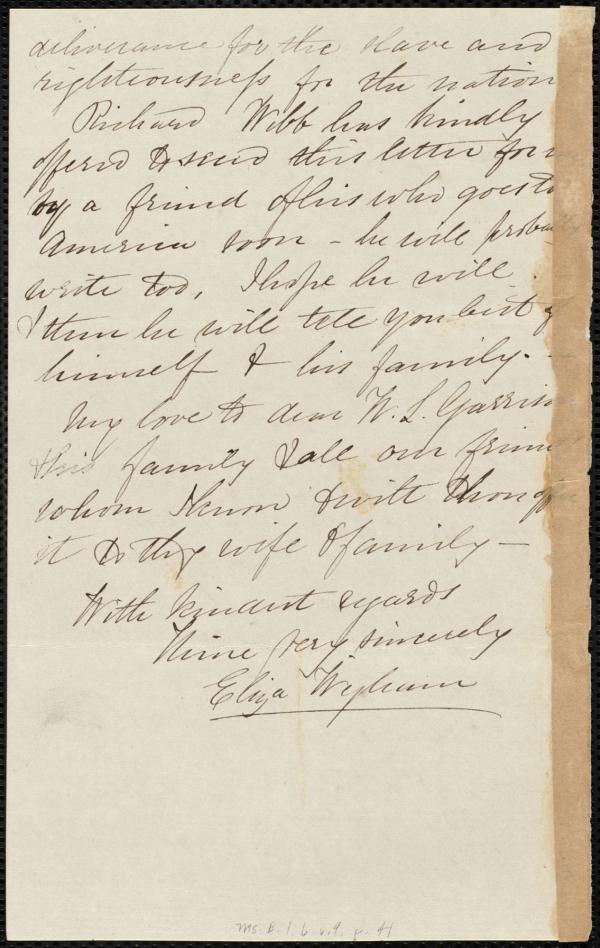 deliverance for the slave and
righteousness for the nation
Richard Webb has kindly
offered to send this letter for
by a friend of his who goes to
America soon - he will probably
write too, I hope he will.
& then he will tell you best of
himself & his family. -
My love to dear W. L. Garrison
& his family & all our friends
whom I know & with
it to thy wife & family -
With kindest regards
Thine very sincerely
Eliza Wigham
Ms. B. 1. 6 v. 9, p. 41